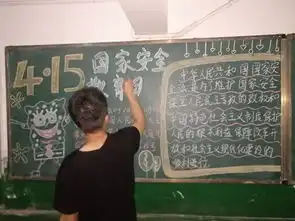 4·15
国家安全
教育日
中华人民共和国国家安
全法是为了维护国家安全
保卫人民民主专政的政权和
中国特色社会主义制度保护
人民的根本利益保障改革开
放和社会主义现代化建设的
顺利进行